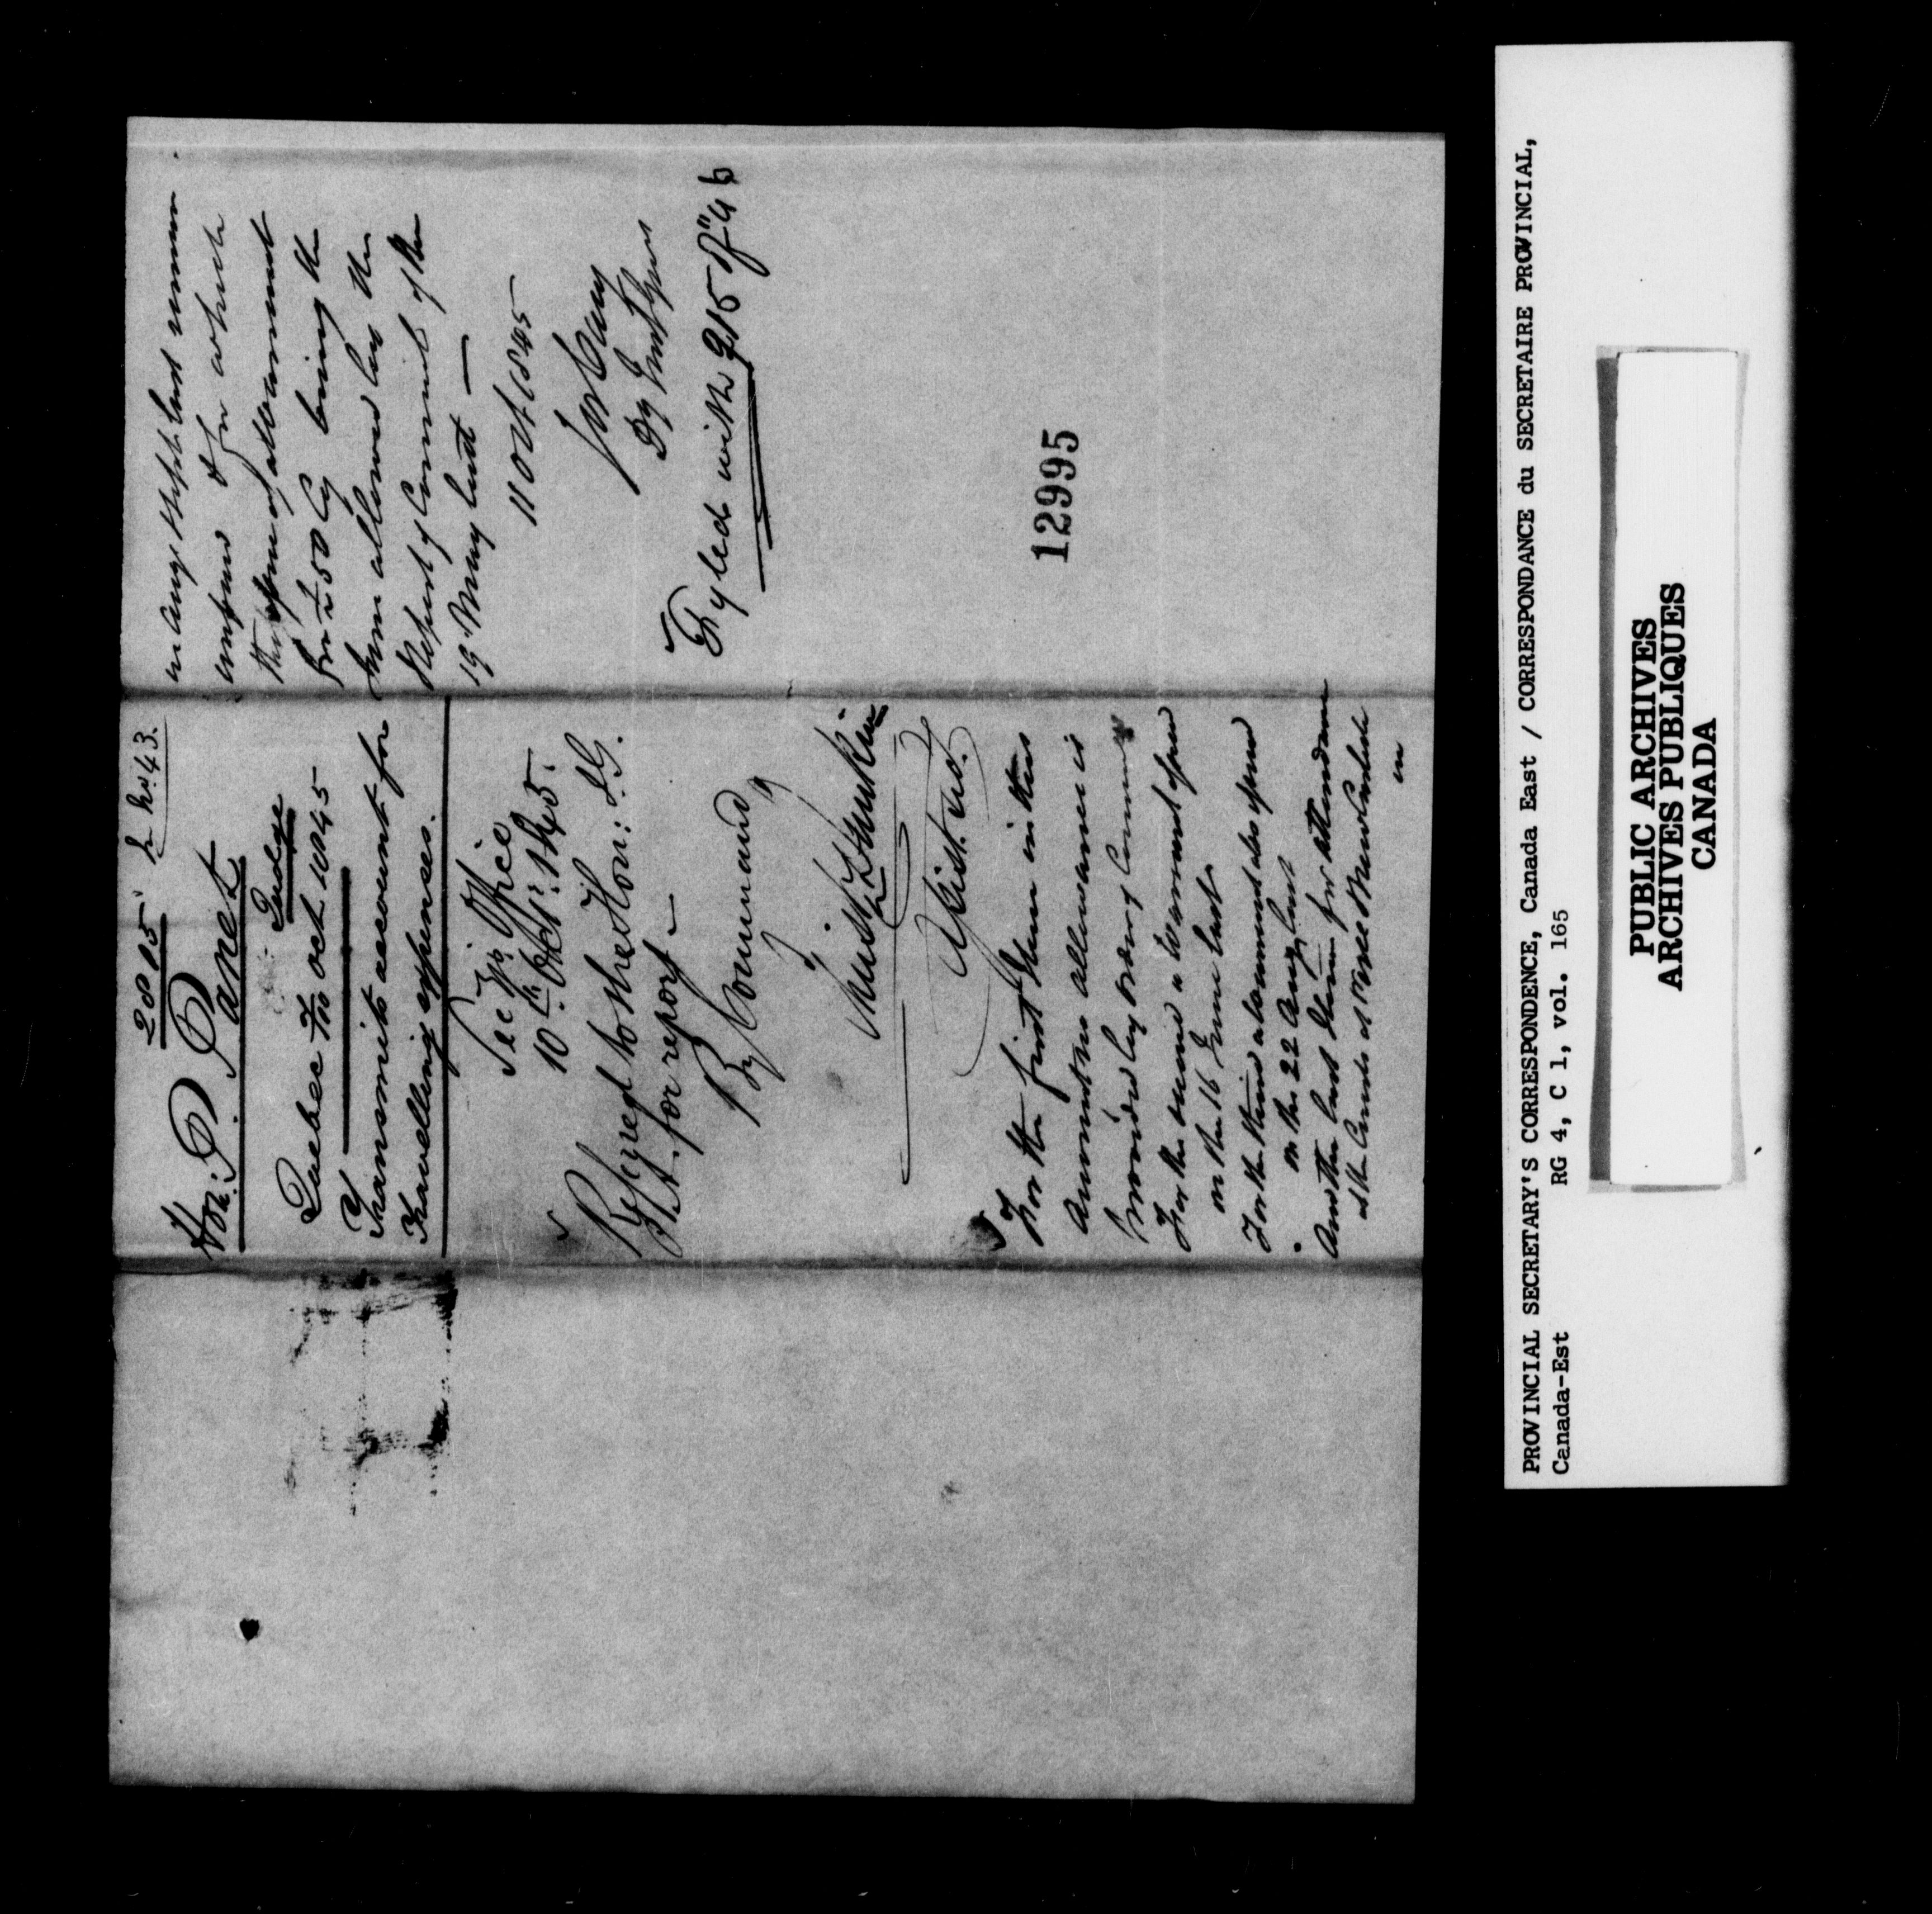 2805 L. No. 43.
Hon: P. Panet
Judge
Quebec 7th Oct 1845
Transmits account for
Travelling expenses.
Secy's Office
10th Octr: 1845.
Refered to the Hon: I.G.
for report –
By Command
Asist. Sec.
For the first Item in this
Account no allowance is
provided by order of Council
For the second a Warrant issued
on the 16 June last.
For the third a Warrant also issued
on the 22 Augt last
And the last Item for attendance
at the Courts at Percé & New Carlisle
in
in Augt & Sept. last remain
unpaid & for which
for £50 Cy being the
sum allowed by the
Report of Council of the
19 May last —
11 Oct 1845
Jos Cary
Dy Inspr Genl
Fyled with 915 of "45
12995
PROVINCIAL SECRETARY'S CORRESPONDENCE, Canada East / CORRESPONDANCE du SECRETAIRE PROVINCIAL,
Canada-Est RG 4, C 1, vol. 165
PUBLIC ARCHIVES
ARCHIVES PUBLIQUES
CANADA